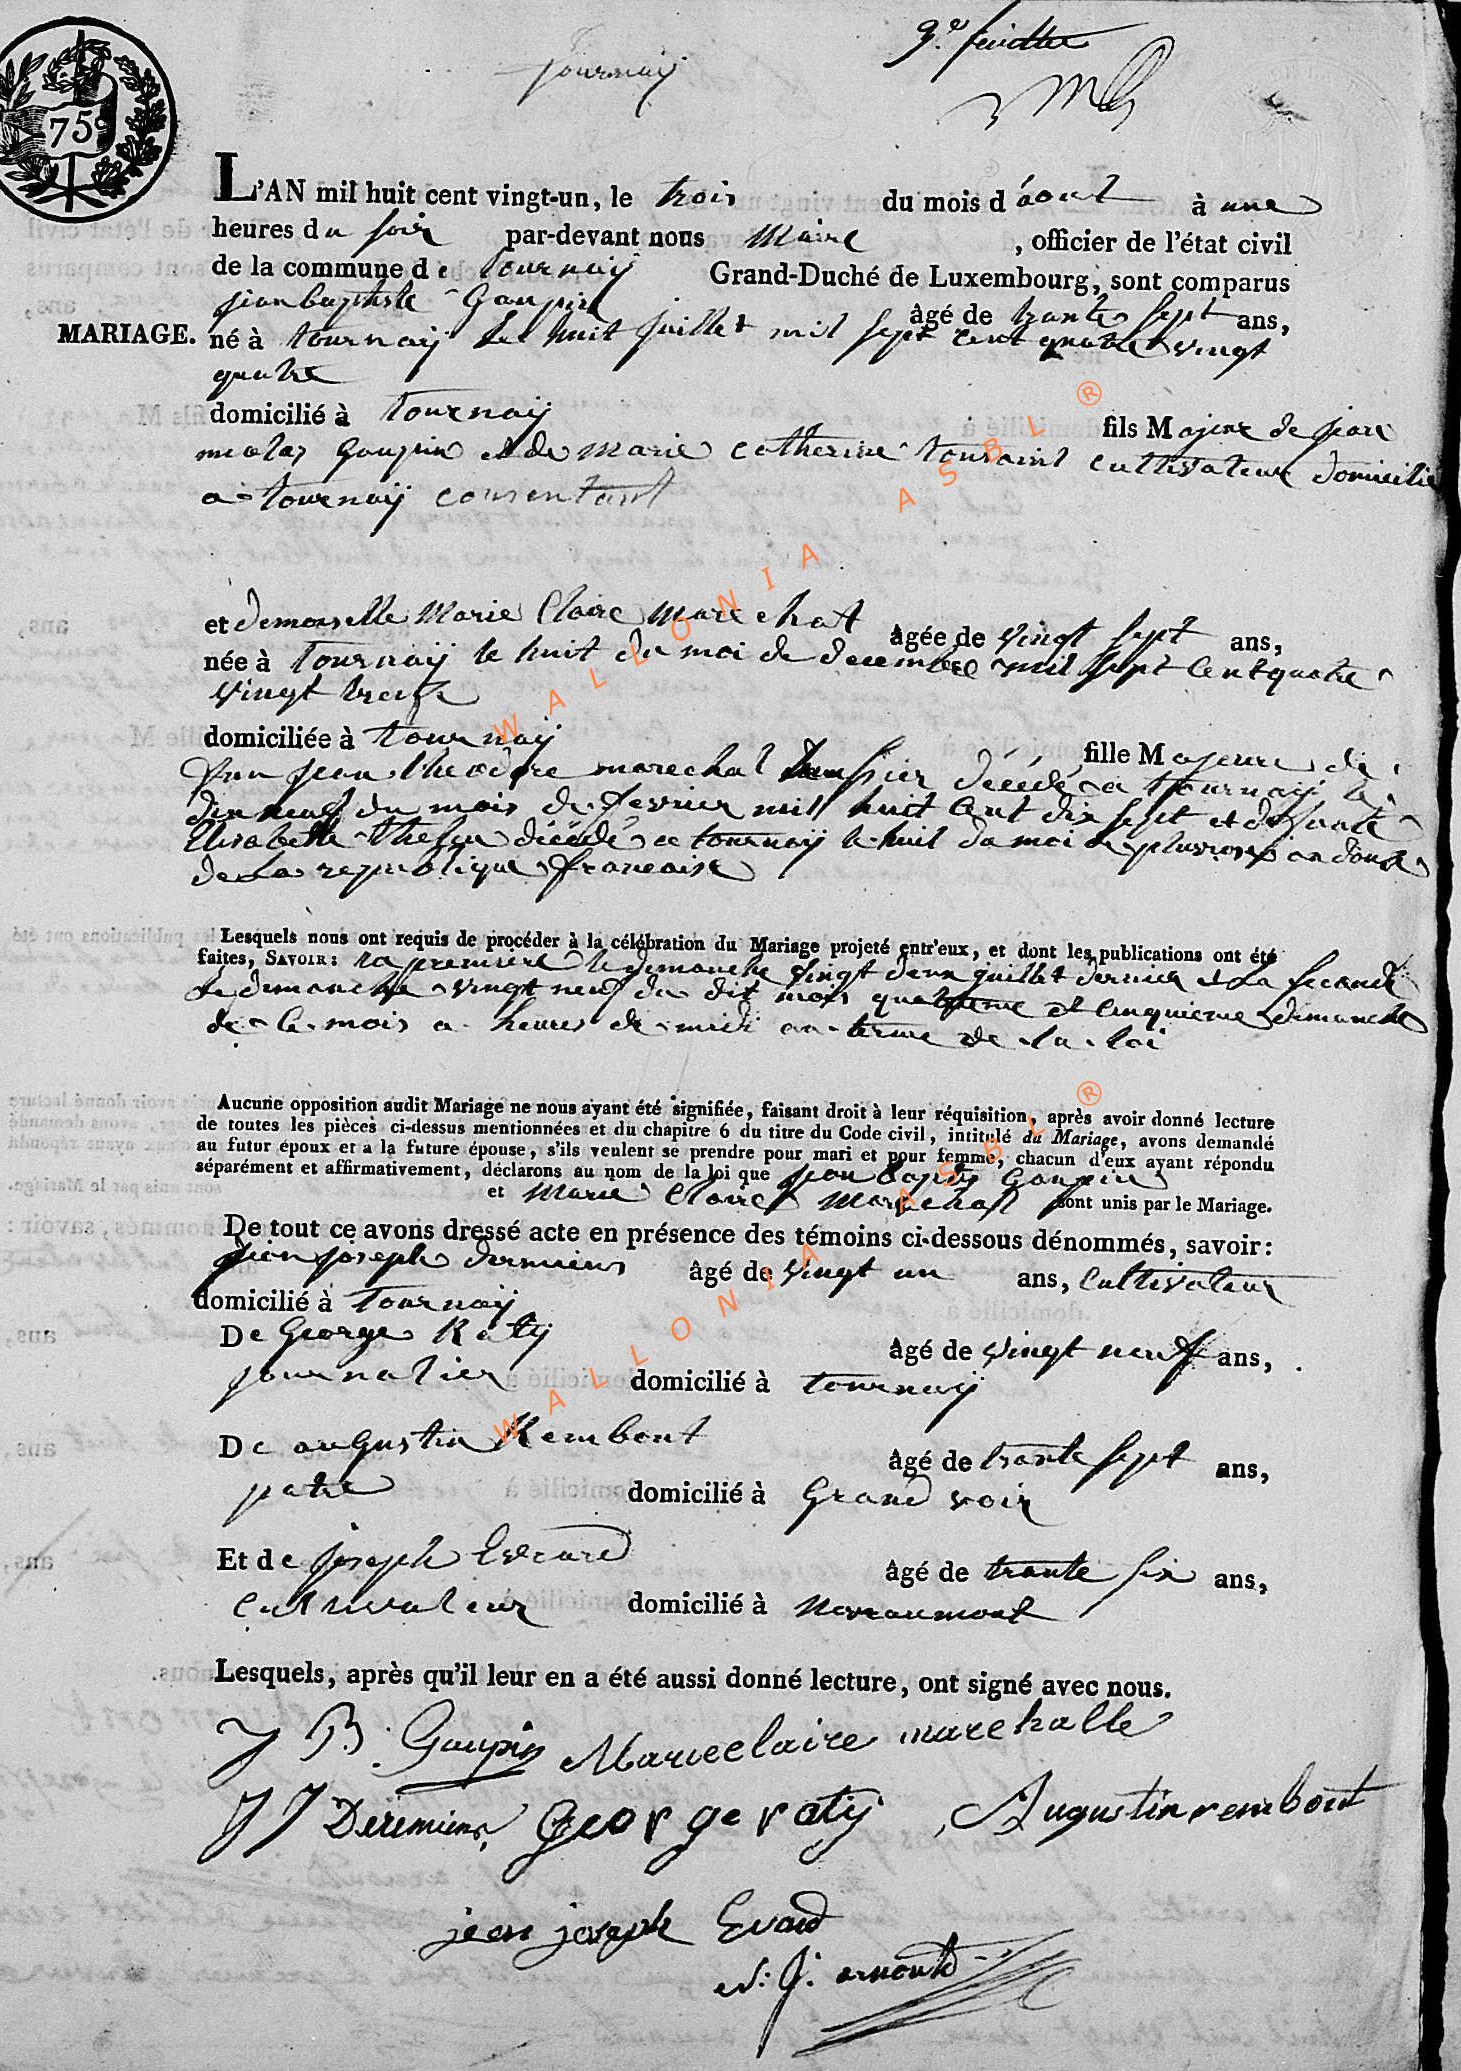 tournaÿ
3.e feuillet
75c
L'AN mil huit cent vingt-un, le trois du mois d'aout à une
heures du soir par-devant nous Maire , officier de l'état civil
de la commune de tournaÿ Grand-Duché de Luxembourg, sont comparus
jean baptiste Goupin âgé de trante sept ans,
MARIAGE. né à tournaÿ le huit juillet mil sept cent quatre vingt
quatre
domicilié à tournaÿ fils Majeur de jean
nicolas Goupin et de marie catherine tousaint cultivateur domicilié
a tournaÿ consentant
et demoiselle Marie Claire Marechal âgée de vingt sept ans,
née à tournaÿ le huit du moi de decembre mil sept cent quatre
vingt treize
domiciliée à tournaÿ fille Majeure de
feu jean theodore marechal décédé a tournaÿ le
dix neuf du mois de fevrier mil huit cent dix sept et de
Elisabethe décédé a tournaÿ le huit du moi de pluviose an douze
de la republique francaise
Lesquels nous ont requis de procéder à la célébration du Mariage projeté entr'eux, et dont les publications ont été
faites, SAVOIR: la premiere le dimanche vingt deux juillet dernier et la seconde
le dimanche vingt neuf du dit mois quatrieme et cinquieme dimanche
de ce mois a heures de midi au terme de la loi
Aucune opposition audit Mariage ne nous ayant été signifiée, faisant droit à leur réquisition, après avoir donné lecture
de toutes les pièces ci-dessus mentionnées et du chapitre 6 du titre du Code civil, intitulé du Mariage, avons demandé
au futur époux et a la future épouse, s'ils veulent se prendre pour mari et pour femme, chacun d'eux ayant répondu
séparément et affirmativement, déclarons au nom de la loi que jean baptis Goupin
et Marie Claire Marechal sont unis par le Mariage.
De tout ce avons dressé acte en présence des témoins ci-dessous dénommés, savoir:
jean joseph deremiens âgé de vingt un ans, cultivateur
domicilié à tournaÿ
De George Ratÿ âgé de vingt neuf ans,
journalier domicilié à tournaÿ
De augustin Rembout âgé de trante sept ans,
patre domicilié à Grand voir
Et de joseph Evrard âgé de trante six ans,
cultivateur domicilié à Neveraumont
Lesquels, après qu'il leur en a été aussi donné lecture, ont signé avec nous.
J B Goupin Marie claire marehalle
J J Deremiens George ratÿ Augustin rembout
jean joseph Evard
N: J: arnould
WALLONIA ASBL ®
WALLONIA ASBL ®